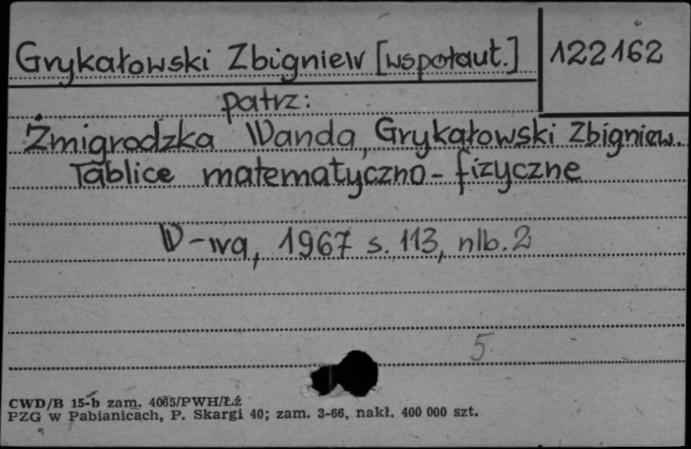 Grykałowski Zbigniew [współaut.] 122162
patrz:
Żmigrodzka Wanda, Grykałowski Zbigniew.
Tablice matematyczno-fizyczne
W-wa, 1967 s. 113, nlb. 2
5
CWD/B 15-b zam. 4065/PWH/Łź
PZG w Pabianicach, P. Skargi 40; zam. 3-66, nakł. 400 000 szt.